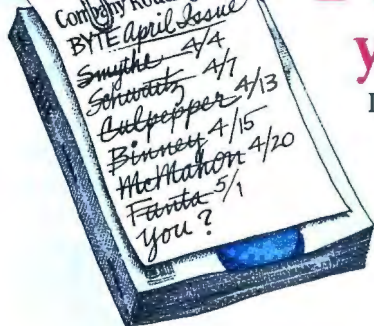 BYTE April Issue
Smythe 4/4
Schwartz 4/7
Culpepper 4/13
Binney 4/15
McMahon 4/20
Fanta 5/1
You?
y